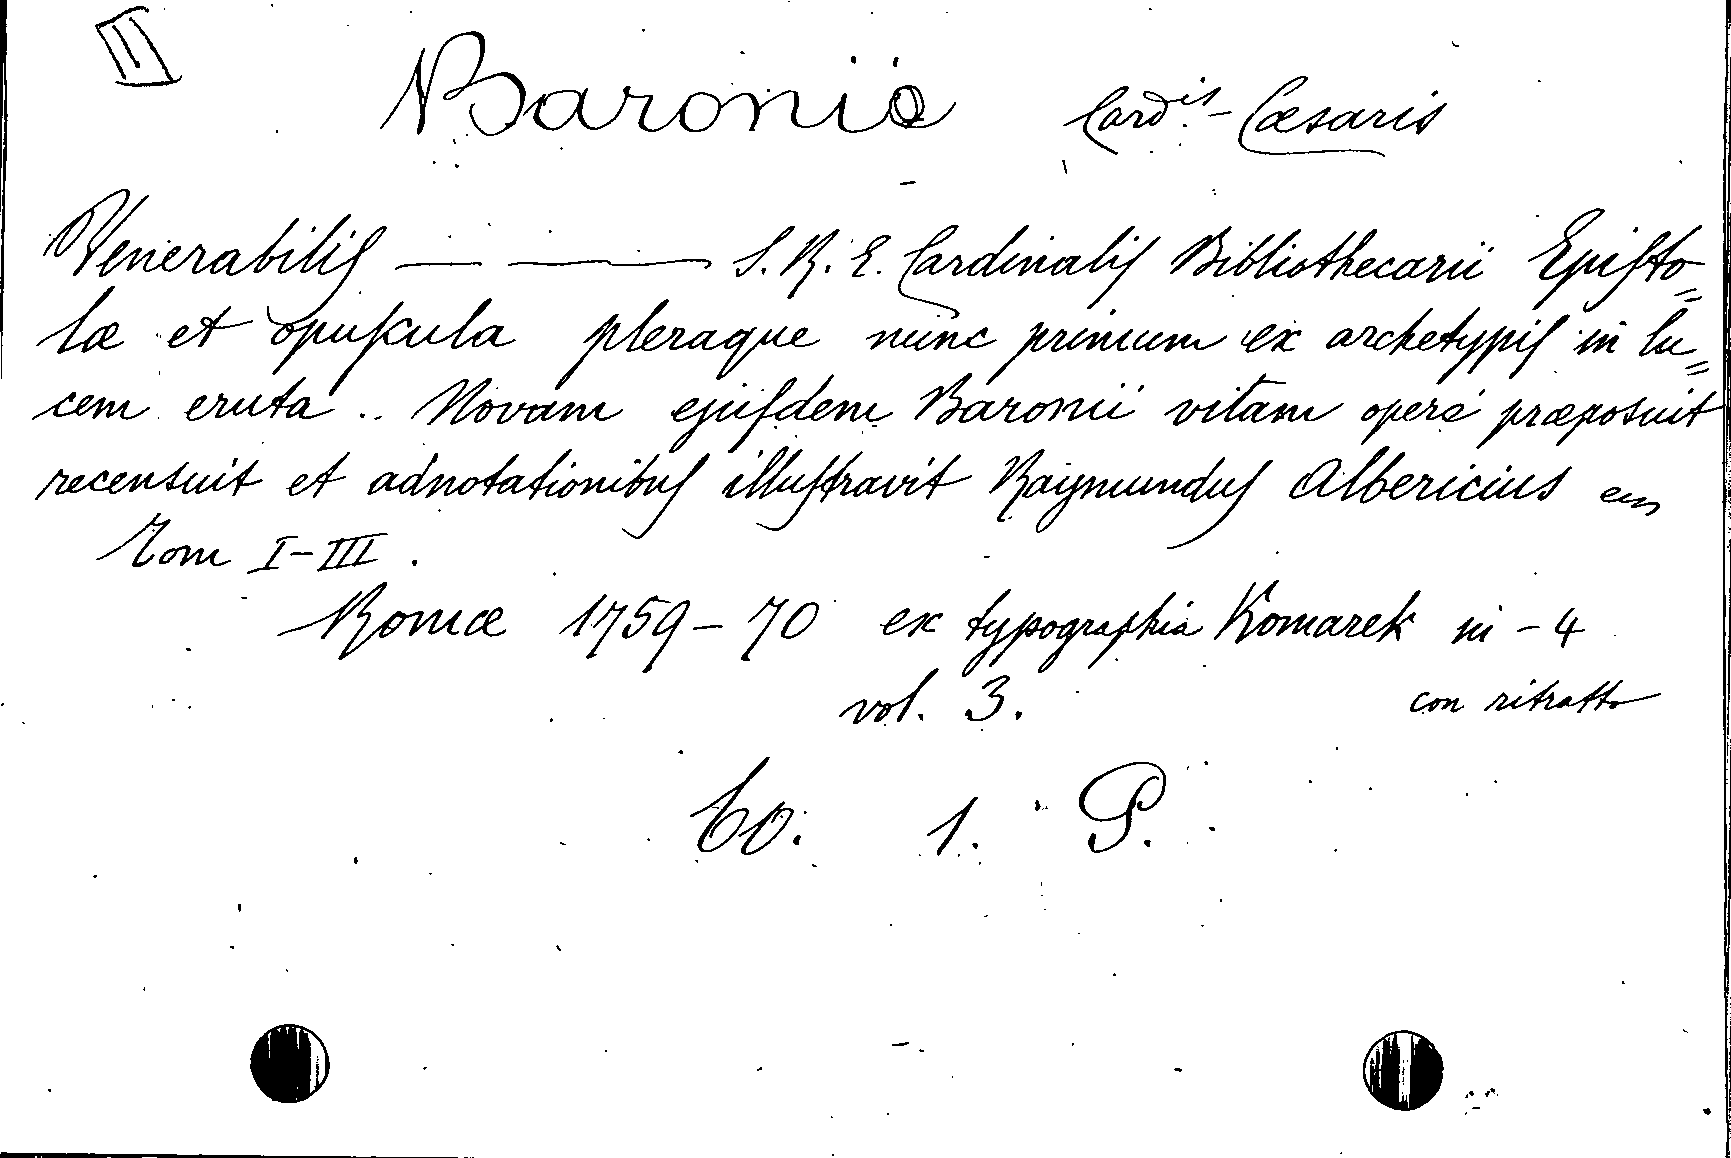 II
Baronio Card.is - Cæsaris
Venerabilis — — S. R. E. Cardinalis Bibliothecarii Episto=
læ et opuscula pleraque nunc primum ex archetypis in lu=
cem eruta .. Novam ejusdem Baronii vitam operi præposuit
recensuit et adnotationibus illustravit Raymundus Albericius
Tom I-III.
Romæ 1759-70 ex typographia Komarek in-4
vol. 3. con ritratto
60. 1. P.